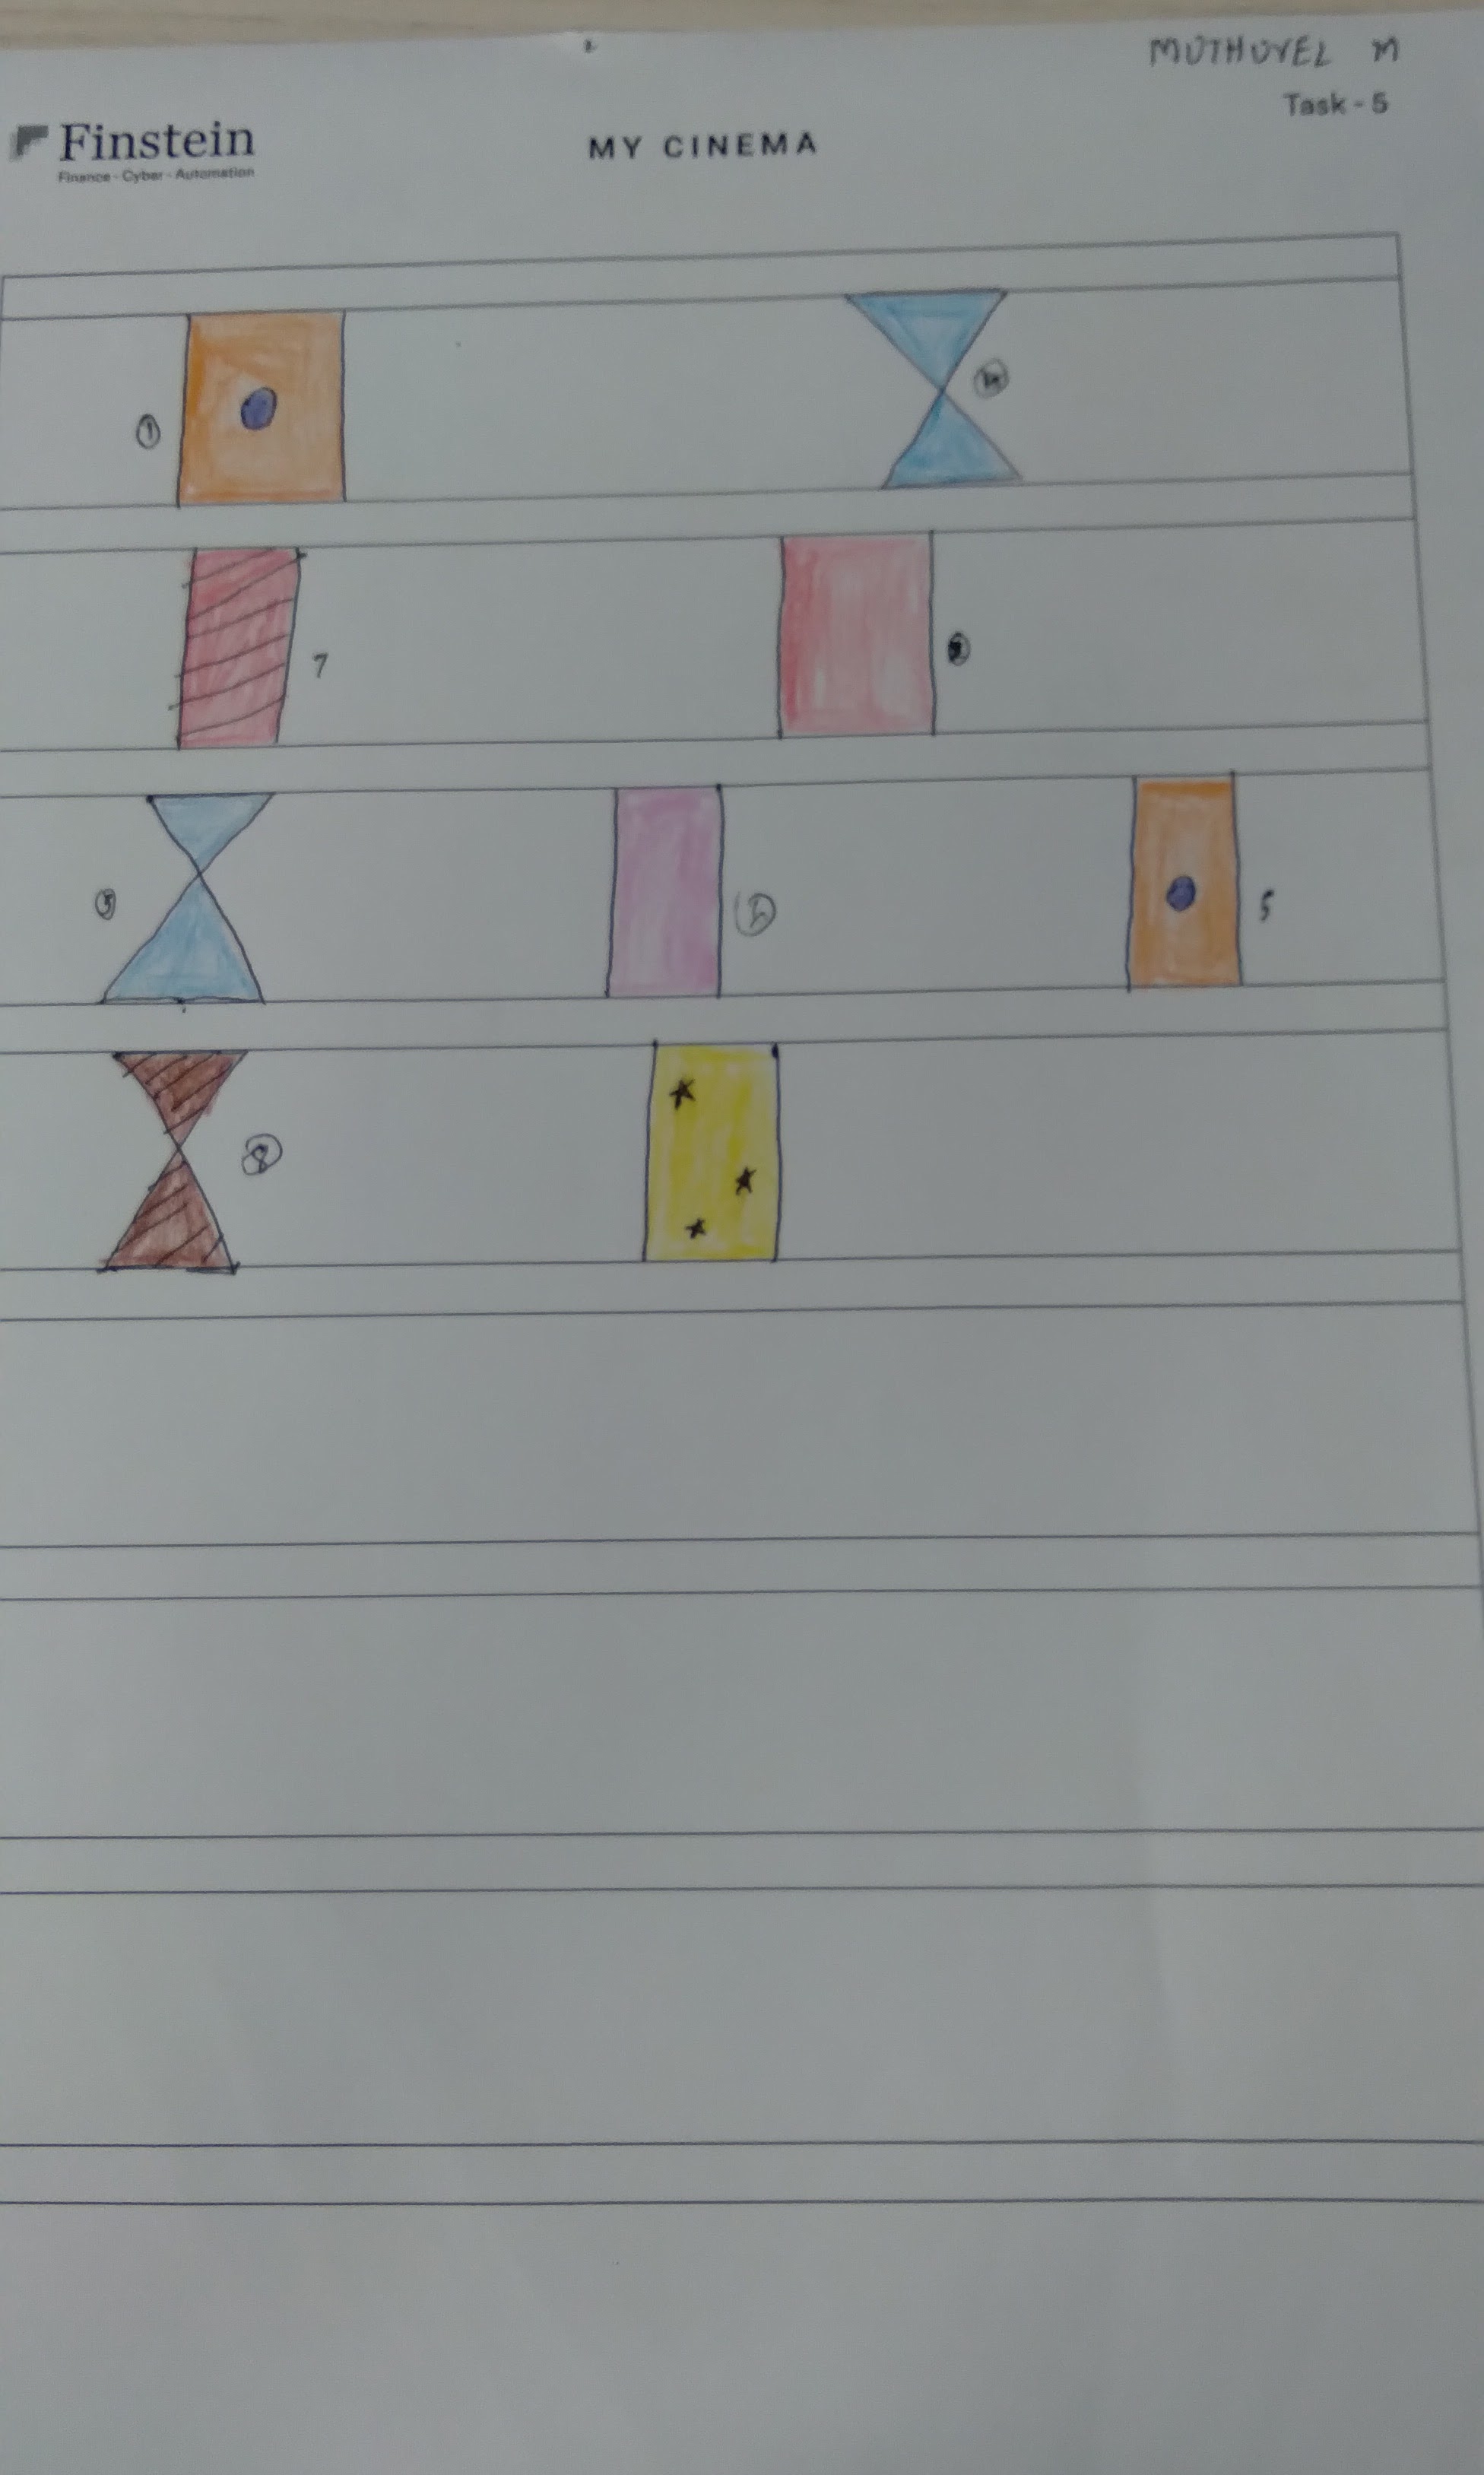 MUTHUVEL M
Task - 5
Finstein
Finance - Cyber - Automation
MY CINEMA
1
7
3
5
8